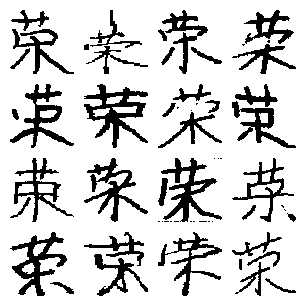 荣荣荣荣
荣荣荣荣
荣荣荣荣
荣荣荣荣